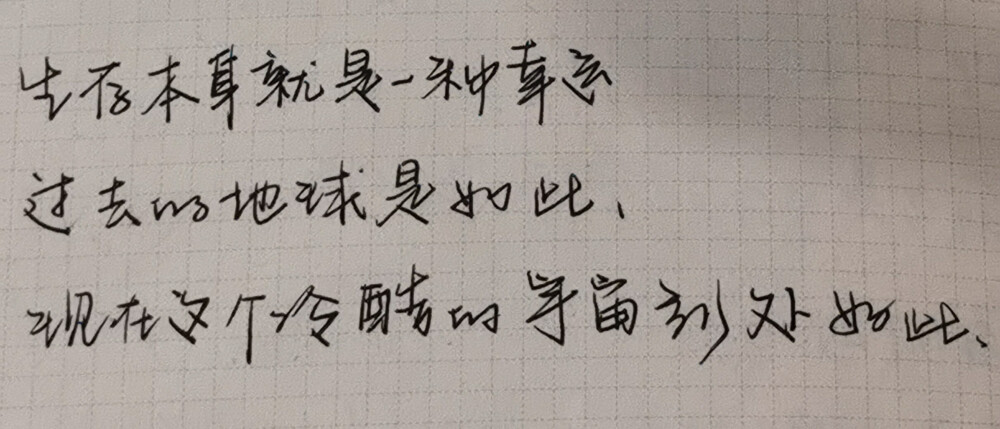 生存本身就是一种幸运
过去的地球是如此、
现在这个冷酷的宇宙到处如此、